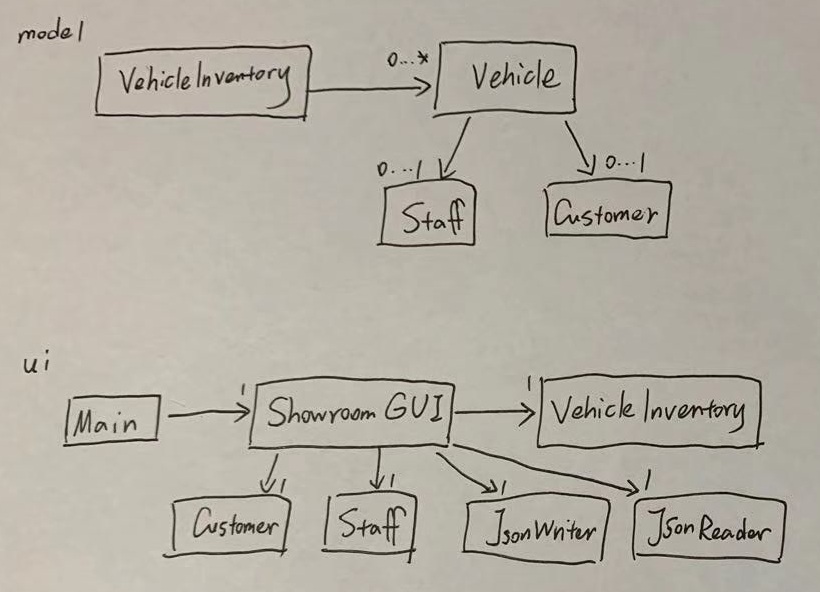 model
VehicleInventory
0...*
Vehicle
0...1
0...1
Staff
Customer
ui
1
1
Main
Showroom GUI
Vehicle Inventory
1
1
1
1
Customer
Staff
JsonWriter
JsonReader